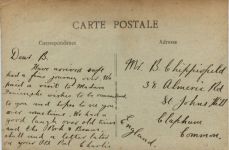 CARTE POSTALE
Correspondance
Adresse
Dear B.
Have arrived safe
had a fine journey over. We
paid a visit to Madam
to you and hopes to see you
over sometime. We had a
good laugh over old times
and the
still and a better later
on your Old Pal Charlie
Mr. B Chippisfield
38 Almeric Rd
St Johns Hill
Clapham
Common.
England